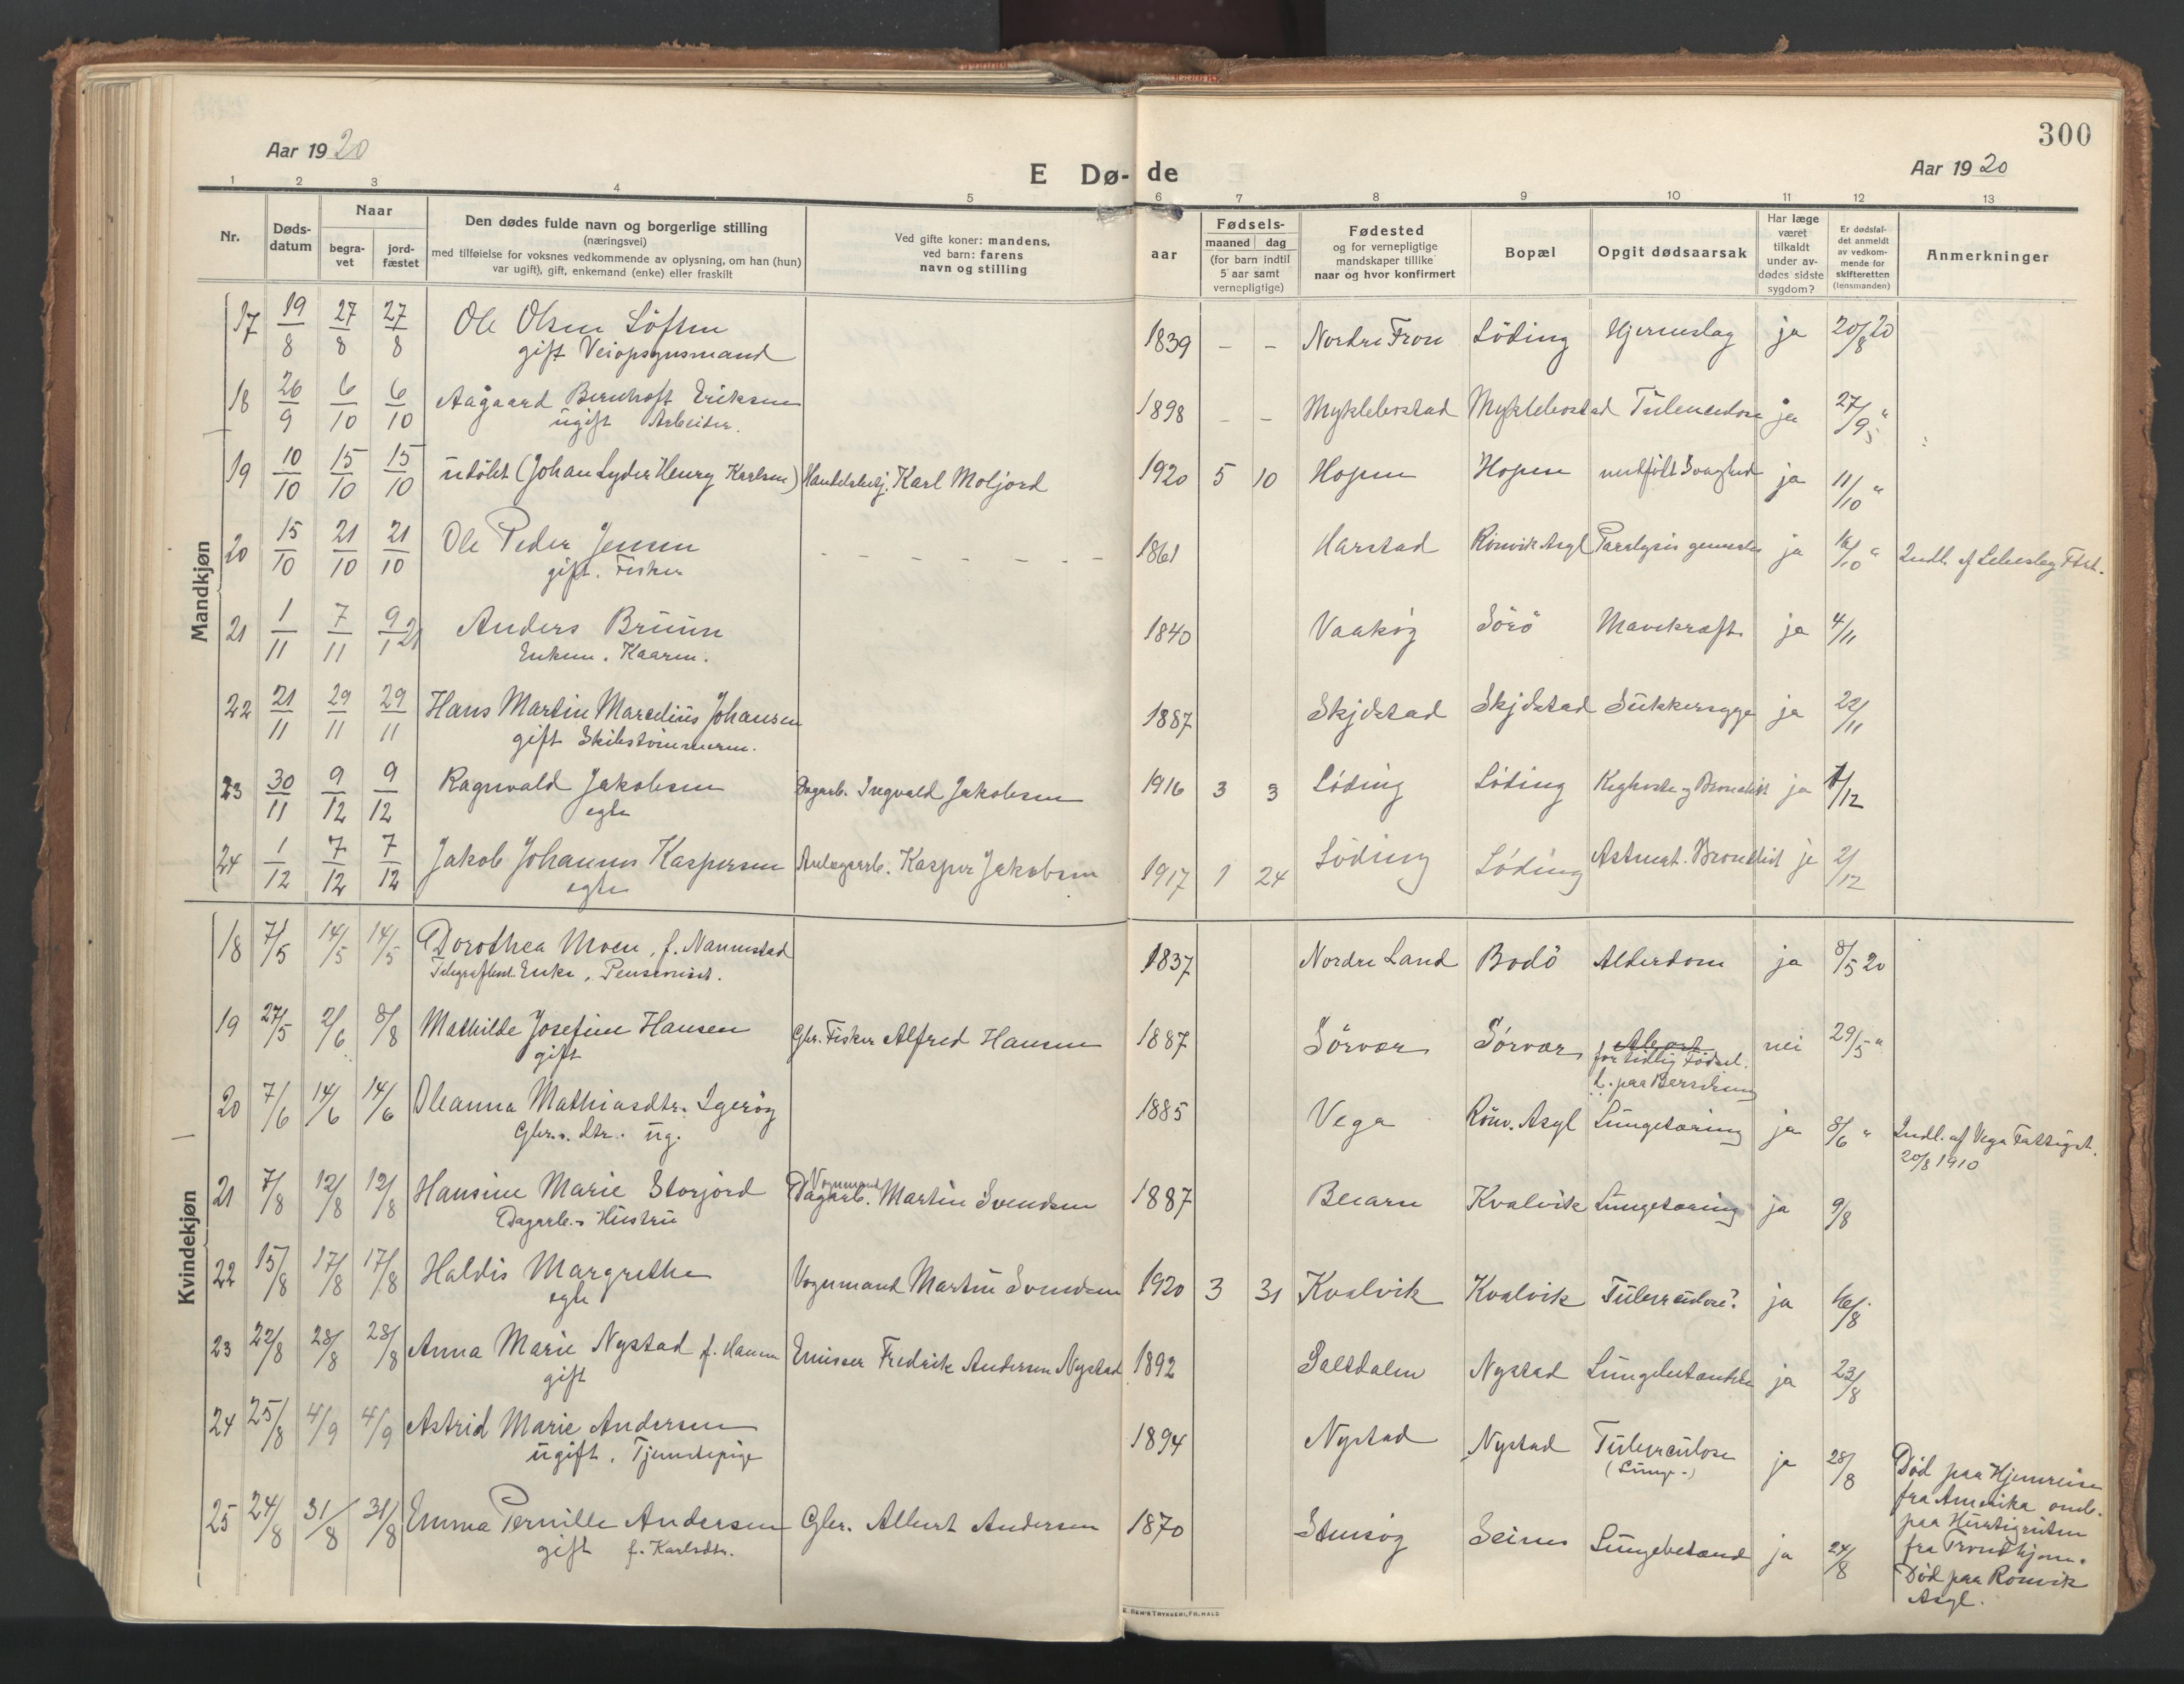 300
Aar 1920
Aar 1920
E Dø- de
1 2 3 4 5 6 7 8 9 10 11 12 13
Nr.
Døds-
datum
Naar
begra-
vet
jord-
fæstet
Den dødes fulde navn og borgerlige stilling
(næringsvei)
med tilføielse for voksnes vedkommende av oplysning, om han (hun)
var ugift), gift, enkemand (enke) eller fraskilt
Ved gifte koner: mandens,
ved barn: farens
navn og stilling
Fødsels-
aar
maaned dag
(for barn indtil
5 aar samt
vernepligtige)
Fødested
og for vernepligtige
mandskaper tillike
naar og hvor konfirmert
Bopæl
Opgit dødsaarsak
Har læge
været
tilkaldt
under av-
dødes sidste
sygdom?
Er dødsfal-
det anmeldt
av vedkom-
mende for
skifteretten
(lensmanden)
Anmerkninger
Mandkjøn
17 19/8 27/8 27/8 Ole Olsen Löften 1839 - - Nordre Fron Löding Hjerneslag ja 20/8 20
gift Veiopsynsmand
18 26/9 6/10 6/10 Aagaard Bernhoft Eriksen 1898 - - Myklebostad Myklebostad Tuberculose ja 27/9 "
ugift Arbeider.
19 10/10 15/10 15/10 udöbt (Johan Lyder Henry Karlsen) Handelsbetj. Karl Moljord 1920 5 10 Hopen Hopen medfödt Svaghed ja 11/10 "
20 15/10 21/10 21/10 Ole Peder Jensen - - - - - - 1861 Harstad Rönvik Asyl Paralysis generalis ja 16/10 " Indl. af Lebesby Fst.
gift. Fisker
21 1/11 7/11 9/1 21 Anders Bruun 1840 Vaaköy Sörö Mavekræft ja 4/11
Enkem. Kaarm.
22 21/11 29/11 29/11 Hans Martin Marcelius Johansen 1887 Skjelstad Skjelstad Sukkersyge ja 22/11
gift Skibstömmerm.
23 30/11 9/12 9/12 Ragnvald Jakobsen Dagarb. Ingvald Jakobsen 1916 3 3 Löding Löding Kighoste og Bronchit ja 1/12
egte
24 1/12 7/12 7/12 Jakob Johannes Kaspersen Anlægsarb. Kasper Jakobsen 1917 1 24 Löding Löding Astmat. Bronchit ja 2/12
egte
Kvindekjøn
18 7/5 14/5 14/5 Dorothea Moen, f. Nannestad 1837 Nordre Land Bodö Alderdom ja 8/5 20
Telegrafbest. Enke, Pensionist.
19 27/5 2/6 8/8 Mathilde Josefine Hansen Gbr. Fisker Alfred Hansen 1887 Sörvær Sörvær Abort nei 29/5 "
gift for tidlig Födsel.
d. paa Barselseng
20 7/6 14/6 14/6 Oleanna Mathiasdtr. Igeröy 1885 Vega Rönv. Asyl Lungetæring ja 8/6 " Indl. af Vega Fattigst.
Gbr.s dtr. ug. 20/8 1910
21 7/8 12/8 12/8 Hansine Marie Storjord Vognmand Dagarb. Martin Svendsen 1887 Beiarn Kvalvik Lungetæring ja 9/8
Dagarb.s Hustru
22 15/8 17/8 17/8 Haldis Margrethe Vognmand Martin Svendsen 1920 3 31 Kvalvik Kvalvik Tuberculose? ja 16/8
egte
23 22/8 28/8 28/8 Anna Marie Nystad f. Hansen Emissær Fredrik Andersen Nystad 1892 Saltdalen Nystad Lungebetændelse ja 23/8
gift
24 25/8 4/9 4/9 Astrid Marie Andersen 1894 Nystad Nystad Tuberculose ja 28/8 Död paa Hjemreise
ugift. Tjenestepige (Lunge-) fra Amerika omb.
paa Hurtigruten
fra Trondhjem.
25 24/8 31/8 31/8 Emma Pernille Andersen Gbr. Albert Andersen 1870 Stensöy Seines Lungebetænd ja 24/8 Död paa Rönvik
gift f. Karlsdtr. Asyl.
E. SEM'S TRYKKERI, FR.HALD